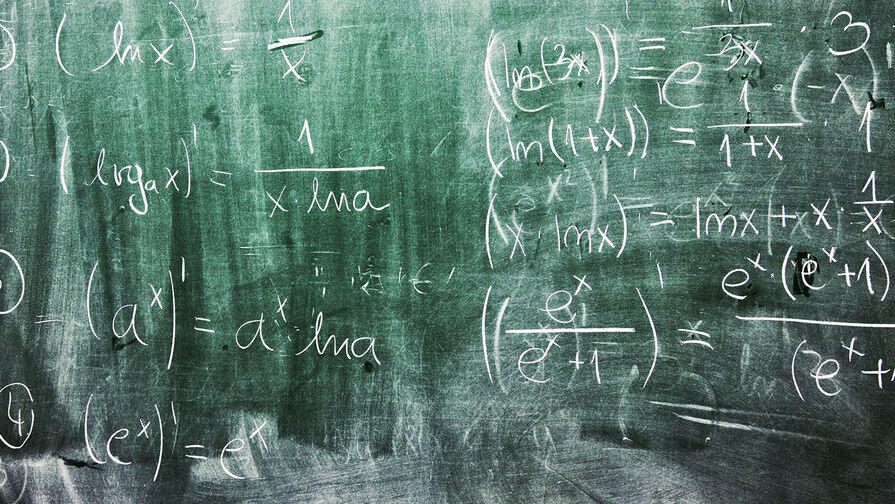 (ln x)' = 1/x
(log_a x)' = 1/(x · ln a)
(a^x)' = a^x · ln a
4 (e^x)' = e^x
(ln(3x))' = 1/3x · 3
(ln(1+x))' = 1/(1+x)
(x · ln x)' = ln x + x · 1/x
(e^x/(e^x+1))' = e^x · (e^x+1)
(e^x +